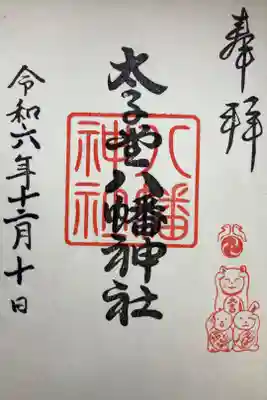 奉拝
太子堂八幡神社
八幡神社
令和六年十二月十日
大吉